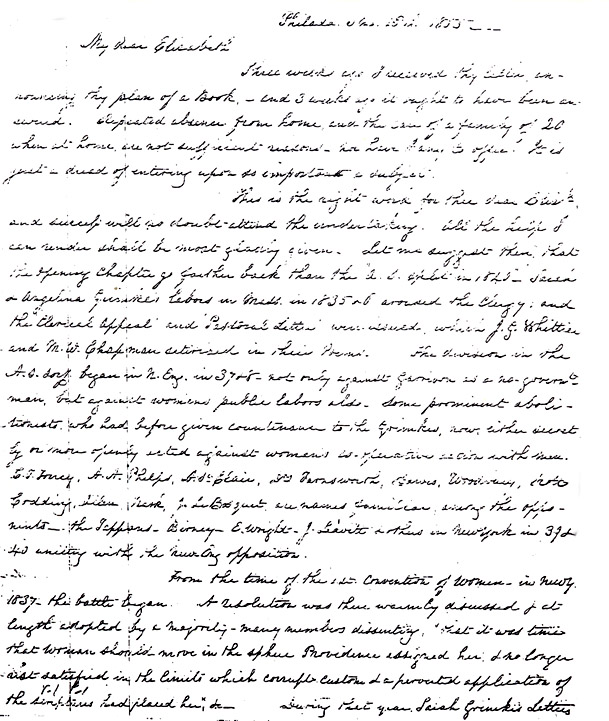 Philada. 3mo. 16th. 1855 —
My dear Elizabeth
Three weeks ago I received thy letter, an-
nouncing thy plan of a Book, - and 3 weeks ago it ought to have been an
swered. Repeated absence from home, and the care of a family of 20
when at home, are not sufficient reasons - nor have I any to offer. It is
just a dread of entering upon so important a subject.
This is the right work for thee dear Elizth.
and success will no doubt attend the undertaking. All the help I
can render shall be most gladly given. Let me suggest then, that
the opening Chapter go farther back than the A. S. split in 1840 - Sarah
& Angelina Grimké's labors in Mass. in 1835 or 6 aroused the Clergy; and
the "Clerical Appeal" and "Pastoral Letter" were issued, which J. G. Whittier
and M. W. Chapman satirized in their Poems. The division in the
A. S. Socy. began in N. Eng. in 37 or 8 - not only against Garrison as a no-governt.
man, but against women's public labors also - Some prominent aboli-
tionists, who had, before given countenance to the Grimkes, now, either secret
ly or more openly acted against women's co-operative action with men.
C. T. Torrey, A. A. Phelps, A. St. Clair, Farnsworth, Woodbury,
Codding, J. Le Bosquet, are names familiar, among the oppo-
nents - the Tappans - Birney - E. Wright - J. Leavitt & others in New York in 39 &
40 uniting with the New Eng opposition.
From the time of the 1st. Convention of Women - in New Y.
1837 - the battle began. A resolution was there warmly discussed & at
length adopted by a majority - many members dissenting, "that it was time
that woman should move in the sphere Providence assigned her, & no longer
rest satisfied in the limits which corrupt custom & a perverted application of
the Scriptures had placed her", &c - During that year Sarah Grimké's Letters